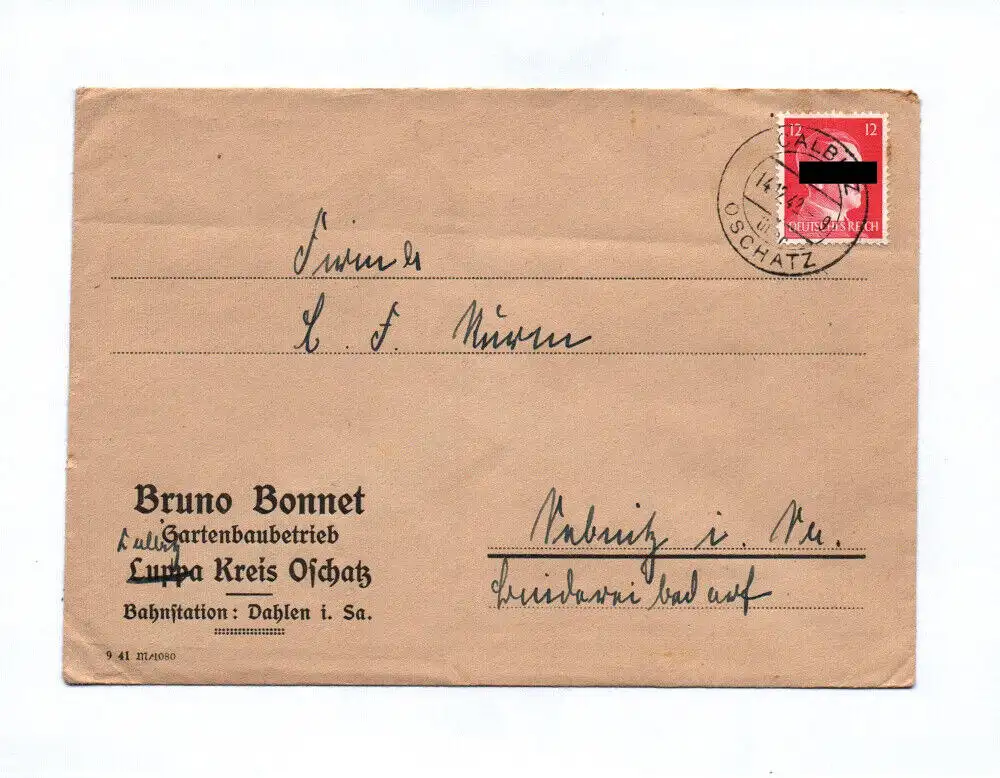 12 12
CALBITZ
14.12.42
über
OSCHATZ
DEUTSCHES REICH
Firma
C. F. Sturm
Bruno Bonnet
Gartenbaubetrieb
Calbitz
Luppa Kreis Oſchatz
Bahnſtation: Dahlen i. Sa.
9 41 M/1080
Sebnitz i. Sa.
Bindereibedarf